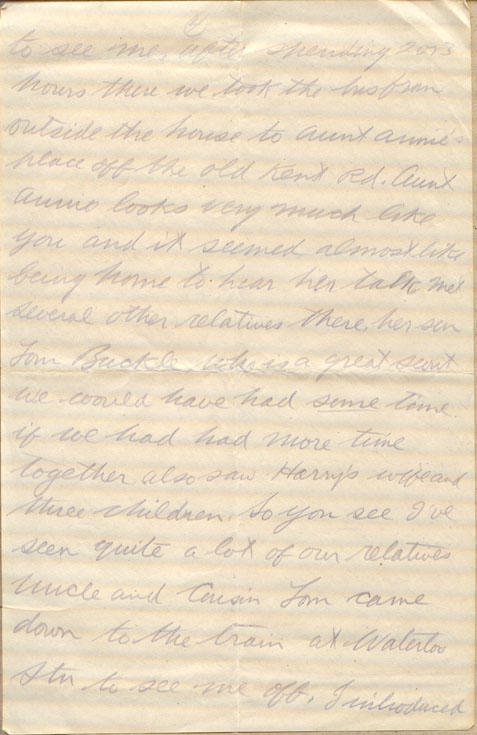 to see me, after spending 2 or 3
hours there we took the bus from
outside the house to Aunt Annie's
place off the old Kent Rd. Aunt
Annie looks very much like
you and it seemed almost like
being home to hear her talk met
several other relatives there, her son
Tom Buckle, who is a great scout
we would have had some time
if we had had more time
together also saw Harry's wife and
three children. So you see I've
seen quite a lot of our relatives
Uncle and Cousin Tom came
down to the train at Waterloo
Stn to see me off. I introduced